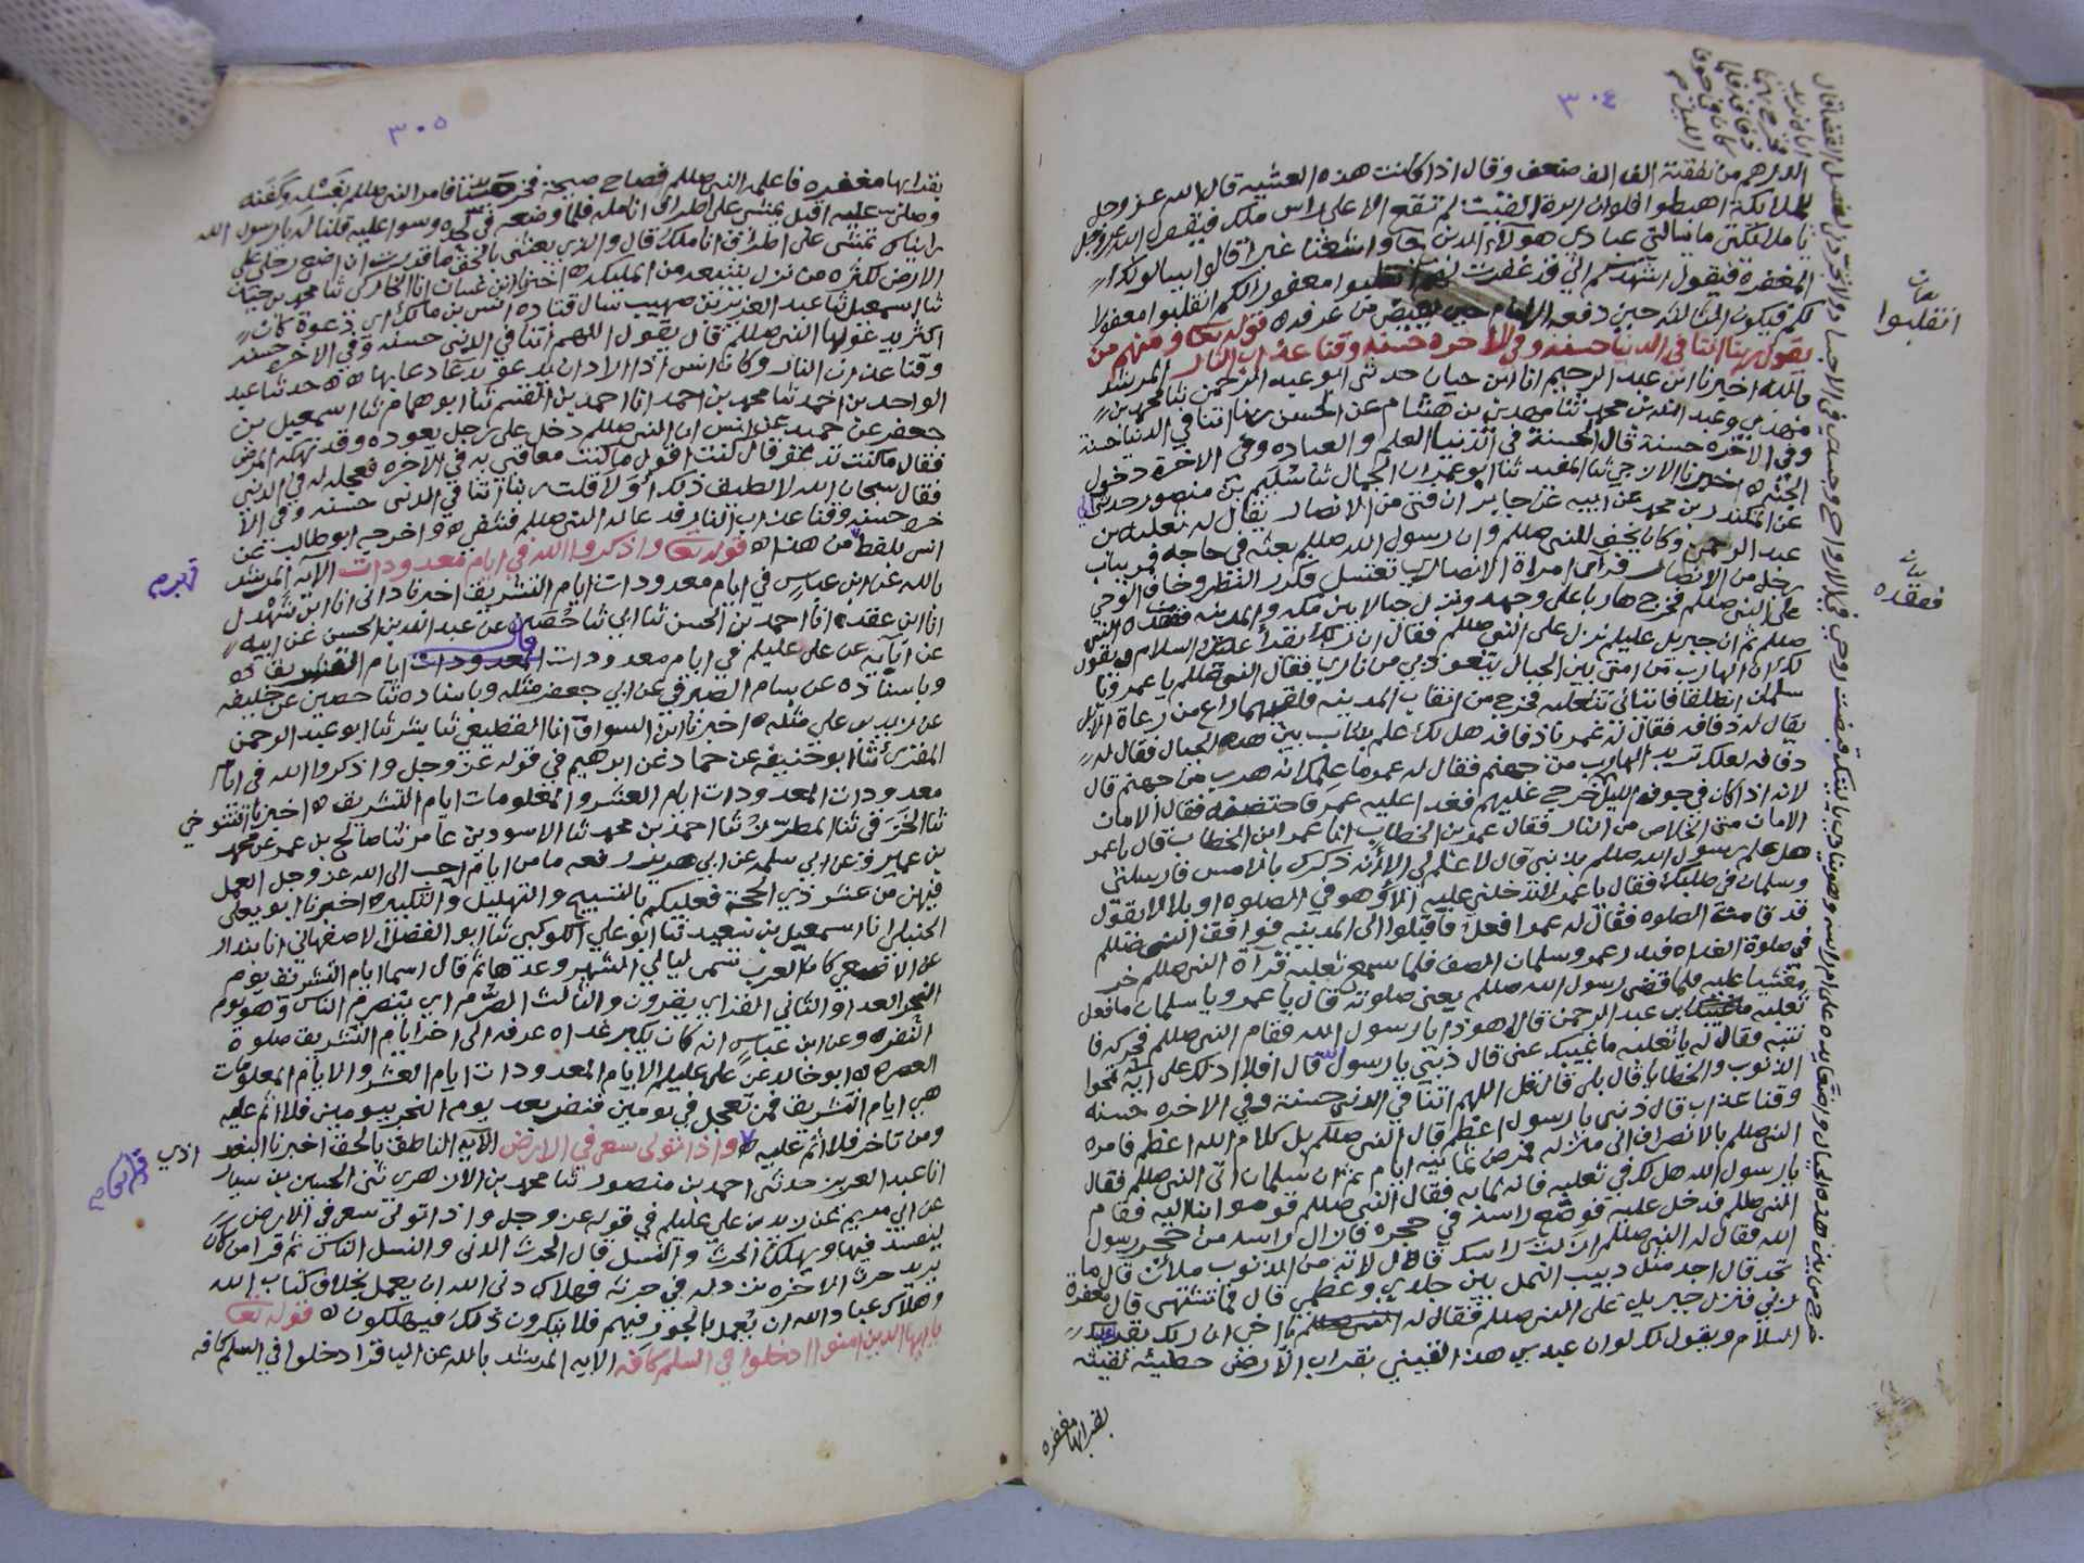 ٣٠٤
الدراهم من نفقته الف الف ضعف وقال اذا كانت هذه العشيه قال الله عز وجل
لملائكة اهبطوا فلو ان ابرة القيت لم تقع الا على راس ملك فيقول الله عز وجل
يا ملائكتي ما نبالتي عبادي هولاء الذين
المغفرة فيقول اشهدكم اني قد غفرت لهم انقلبوا مغفورا لكم انقلبوا مغفورا
لكم فيكون المثالة حين دفعه الامام حين يفيض من عرفه قوله تعا ومنهم من
يقول ربنا اتنا في الدنيا حسنه وفي الاخره حسنه وقنا عذاب النار المرشد
بالله اخبرنا ابن عبد الرحيم انا ابن حيان حدثني ابو عبد الرحمن ثنا محمد بن
وعبد الله بن محمد ثنا مهدي بن هشام عن الحسن ربنا اتنا في الدنيا حسنة
وفي الاخره حسنة قال الحسنة في الدنيا العلم والعباده وفي الاخرة دخول
الجنه اخبرنا الازجي ثنا المفيد ثنا ابو عمران الجمال ثنا سليم بن منصور حدثني ابي
عن المنكدر بن محمد عن ابيه عن جابر ان فتى من الانصار يقال له ثعلبه بن
عبد الرحمن وكان يخف للنبي صللم وان رسول الله صللم بعثه في حاجه فمر بباب
رجل من الانصار فرآى امراة الانصاري تغتسل فكرر النظر وخاف الوحي
على النبي صللم فخرج هاربا على وجهه ونزل جبالا بين مكه والمدينه ففقده النبي
صللم ثم ان جبريل عليلم نزل على النبي صللم فقال ان ربك يقرأ عليك السلام ويقول
لك ان الهارب من امتي بين الجبال يتعوذ بي من ناري فقال النبي صللم يا عمر ويا
سلمان انطلقا فاتياني بثعلبه فخرج من انقاب المدينه فلقيهما راع من رعاة الابل
يقال له ذفافه فقال له عمر يا ذفافه هل لك علم بشاب بين هذه الجبال فقال له
ذفافه لعلك تريد الهارب من جهنم فقال له عمر وما علمك انه هرب من جهنم قال
لانه اذا كان في جوف الليل خرج عليهم فغدا عليه عمر فاحتضنه فقال الامان
الامان متى الخلاص من النار فقال عمر بن الخطاب انا عمر ابن الخطاب قال يا عمر
هل علم رسول الله صللم بذنبي قال لا علم لي الا انه ذكرك بالامس فارسلني
وسلمان في طلبك فقال يا عمر لا تدخلني عليه الا وهو في الصلوه او بلال يقول
قد قامت الصلوه فقال له عمر افعل فاقبلوا الى المدينه فوافقا النبي صللم
في صلوة الغداه فبدر عمر وسلمان الصف فلما سمع ثعلبه قرآة النبي صللم خر
مغشيا عليه فلما قضى رسول الله صللم يعني صلوته قال يا عمر ويا سلمان ما فعل
ثعلبه بن عبد الرحمن قالا هوذا يا رسول الله فقام النبي صللم فحركه فا
نتبه فقال له يا ثعلبه ما غيبك عني قال ذنبي يا رسول الله قال افلا ادلك على آية تمحوا
الذنوب والخطايا قال بلى قال قل اللهم اتنا في الدنيا حسنة وفي الاخره حسنه
وقنا عذاب النار قال ذنبي يا رسول اعظم قال النبي صللم بل كلام الله اعظم فامره
النبي صللم بالانصراف الى منزله فمرض ثمانية ايام ثم ان سلمان اتى النبي صللم فقال
يا رسول الله هل لك في ثعلبه فانه لمابه فقال النبي صللم قوموا بنا اليه فقام
النبي صللم فدخل عليه فوضع راسه في حجره فازال راسه من حجر رسول
الله فقال له النبي صللم لم ازلت راسك قال لانه من الذنوب ملآن قال ما
تجد قال اجد مثل دبيب النمل بين جلدي وعظمي قال فما تشتهي قال مغفرة
ربي فنزل جبريل على النبي صللم فقال له يا اخي ان ربك يقريك
السلام ويقول لك لو ان عبدي هذا لقيني بقراب الارض خطيئه لقيته
بقرابها مغفره
انقلبوا
ففقده
٣٠٥
بقرابها مغفره فاعلمه النبي صللم فصاح صيحة فخر ميتا فامر النبي صللم بغسله وكفنه
وصلى عليه اقبل يمشي على اطراف انامله فلما وضعه في لحده وسوا عليه قلنا له يا رسول الله
رايناك تمشي على اطراف اناملك قال والذي بعثني بالحق ما قدرت ان اضع رجلي على
الارض لكثره من نزل يشيعه من المليكه اخبرنا ابن غسان انا الخاركي ثنا محمد بن حيان
ثنا اسمعيل ثنا عبد العزيز بن صهيب سال قتاده انس بن مالك اي دعوة كان
اكثر يدعو بها النبي صللم قال يقول اللهم اتنا في الدنيا حسنه وفي الاخره حسنه
وقنا عذاب النار وكان انس اذا اراد ان يدعو بدعا دعا بها حدثنا عبد
الواحد بن احمد ثنا محمد بن احمد انا احمد بن القسم ثنا ابو همام ثنا اسمعيل بن
جعفر عن حميد عن انس ان النبي صللم دخل على رجل يعوده وقد نهكه المرض
فقال ما كنت تدعو قال كنت اقول ما كنت معاقبي به في الاخره فعجله لي في الدنيا
فقال سبحان الله لا نطيق ذلك او لا قلت ربنا اتنا في الدنيا حسنه وفي الا
خره حسنه وقنا عذاب النار فدعا له النبي صللم فشفي واخرجه ابو طالب عن
انس بلفظ من هذا قوله تعا واذكروا الله في ايام معدودات الآيه المرشد
بالله عن ابن عباس في ايام معدودات ايام التشريق اخبرنا داني انا ابن شهدل
انا ابن عقده انا احمد بن الحسن ثنا ابي ثنا حصين عن عبد الله بن الحسن عن ابيه
عن ابآيه عن علي عليلم في ايام معدودات قال المعدودات ايام التشريق
وباسناده عن بسام الصيرفي عن ابي جعفر مثله وباسناده ثنا حصين عن خليفه
عن زيد بن علي مثله اخبرنا ابن السواق انا القطيعي ثنا بشر ثنا ابو عبد الرحمن
المقرئ ثنا ابو حنيفه عن حماد عن ابرهيم في قوله عز وجل واذكروا الله في ايام
معدودات المعدودات ايام العشر والمعلومات ايام التشريق اخبرنا التنوخي
ثنا ثنا المطرز ثنا احمد بن محمد ثنا الاسود بن عامر ثنا صالح بن عمر عن محمد
بن عمرو عن ابي سلمه عن ابي هريره رفعه ما من ايام احب الى الله عز وجل العمل
فيهن من عشر ذي الحجة فعليكم بالتسبيح والتهليل والتكبير اخبرنا ابو يعلى
الحنبلي انا اسمعيل بن سعيد ثنا ابو علي الكوكبي ثنا ابو الفضل الاصفهاني انا بندار
عن الاصمعي كان العرب تسمى ليالي الشهر وعدها ثم قال اسما ايام التشريق يوم
النحر الغد او الثاني القر اي يقرون والثالث الصرم اي ينصرم الناس وهو يوم
النفره وعن ابن عباس انه كان يكبر غداه عرفه الى اخر ايام التشريق صلوة
العصر ابو خالد عن علي عليلم الايام المعدودات ايام العشر والايام المعلومات
هي ايام التشريق فمن تعجل في يومين فنفر بعد يوم النحر بيومين فلا اثم عليه
ومن تاخر فلا اثم عليه واذا تولى سعى في الارض الآيه الناطق بالحق اخبرنا البغد
اذي
انا عبد العزيز حدثني احمد بن منصور ثنا محمد بن الازهر ثني الحسين بن سيار
عن ابي مريم عن زيد بن علي عليلم في قوله عز وجل واذا تولى سعى في الارض
ليفسد فيها ويهلك الحرث والنسل قال الحرث الدنى والنسل الناس ثم قرا من كان
يريد حرث الاخره نزد له في حرثه فهلاك دنى الله ان يعمل بخلاف كتاب الله
وهلاك عباد الله ان يعمل بالجور فيهم فلا ينكرون ذلك فيهلكون قوله تعا
يا ايها الذين امنوا ادخلوا في السلم كافه الايه المرشد بالله عن الباقر ادخلوا في السلم كافه